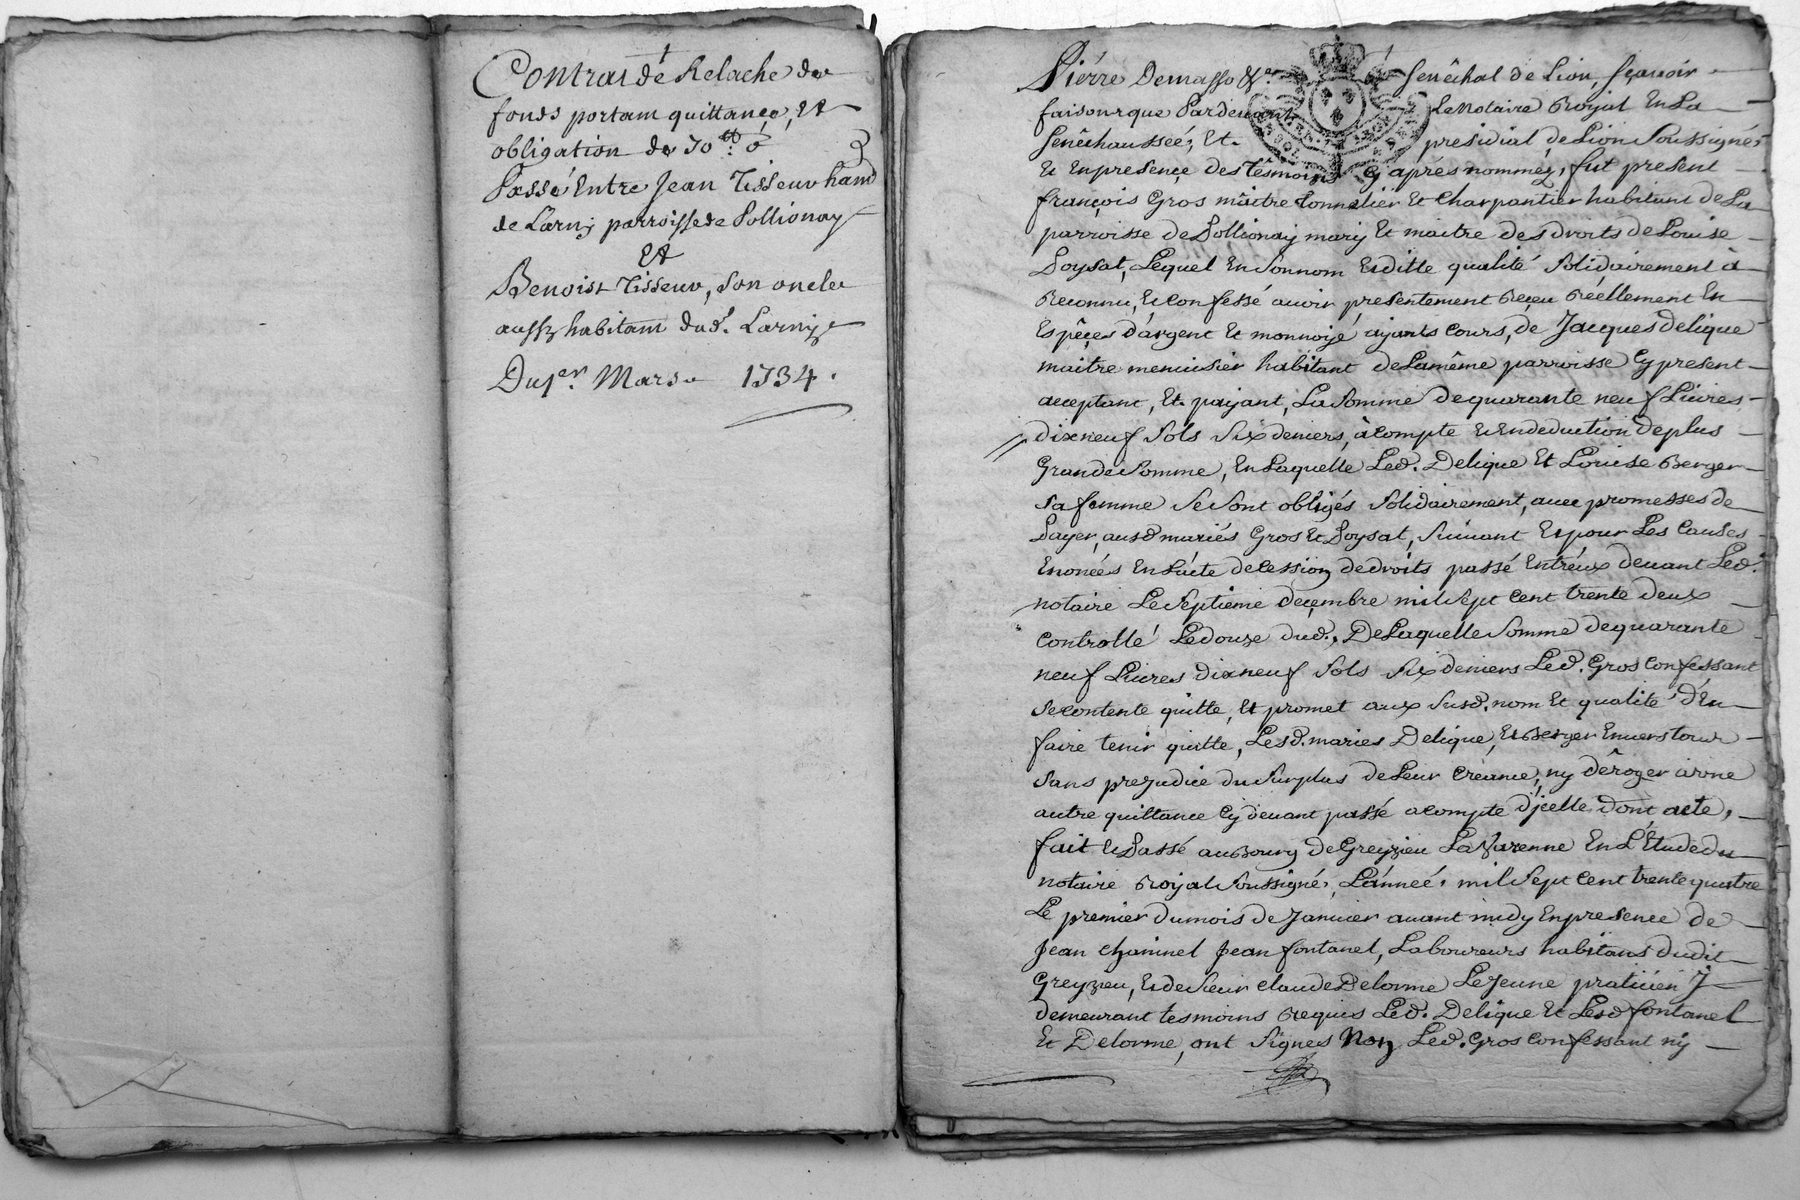 Contrat de Relache de
fonds portant quittance, Et
obligation de 30 ₶
Passé Entre Jean Tisseur hant
de Larny parroisse de Pollionay
Et
Benoist Tisseur, son oncle
aussy habitant dud. Larny
Du 1er Mars 1734.
Pierre Demasso &c. Senêchal de Lion, sçavoir
faisons que Pardevant Le Notaire Royal En La
Senêchaussée, Et presidial de Lion Soussigné,
Et En presençe des Têsmoins Cy aprés nommez, fut present
françois Gros mâitre tonnelier Et Charpantier habitant de La
parroisse de Pollionaÿ mary Et maitre des droits de Louise
Poysat, Lequel En Son nom Et ditte qualité Solidairement à
Reconnu, Et confessé avoir presentement Reçeu Réellement En
Espêçes d'argent Et monnoÿe aÿants cours, de Jacques delique
maitre menuisier habitant de La même parroisse Cy present
acceptant, Et paÿant, La Somme de quarante neuf Livres
dixneuf Sols Six deniers, à compte Et En deduction de plus
Grande Somme, En Laquelle Led. Delique Et Louise Berger
sa femme Se Sont obligés Solidairement, avec promesses de
Payer, ausd mariés Gros Et Poysat, Suivant Et pour Les Causes
Enoncées En L'acte de Cession de droits passé Entr'eux devant Led.
notaire Le Septieme deçembre mil Sept Cent trente deux
Controllé Le douze dud., De Laquelle Somme de quarante
neuf Livres dixneuf Sols Six deniers Led. Gros Confessant
Se contente quitte, Et promet aux Susd. nom Et qualité d'En
faire tenir quitte, Lesd. maries Delique, Et Berger Envers tous
Sans prejudice du Surplus de Leur Créance, ny dêroger à une
autre quittance Cy devant passé acompte d'jcelle dont acte,
fait Et Passé au Bourg de Greyzieu La Varenne En L'Etude du
notaire Roÿal Soussigné, L'année, mil Sept Cent trente quatre
Le premier du mois de Janvier avant midy En presence de
Jean Jean fontanel, Laboureurs habitans dudit
Greyzieu, Et de Sieur Claude Delorme Le Jeune praticien J
demeurant tesmoins Requis Led. Delique Et Lesd fontanel
Et Delorme, ont Signes Non Led. Gros Confessant ny